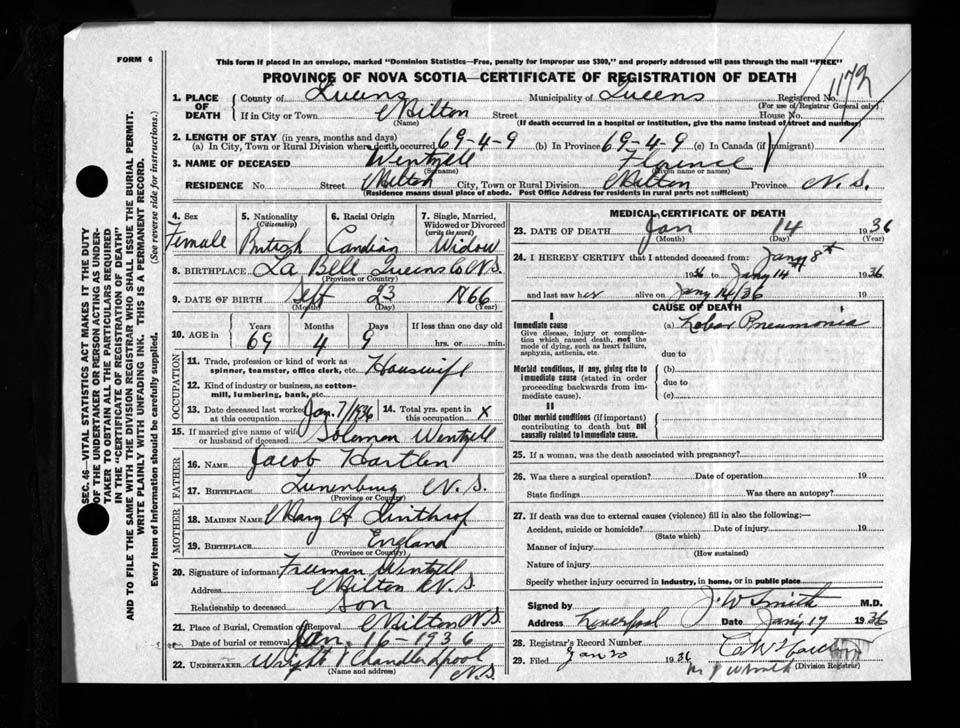 FORM 6
This form if placed in an envelope, marked "Dominion Statistics—Free, penalty for improper use $300," and properly addressed will pass through the mail "FREE"
PROVINCE OF NOVA SCOTIA—CERTIFICATE OF REGISTRATION OF DEATH
1172
1. PLACE OF DEATH County of Queens Municipality of Queens Registered No.
(For use of Registrar General only)
If in City or Town Milton Street House No.
(Name) (If death occurred in a hospital or institution, give the name instead of street and number)
2. LENGTH OF STAY (in years, months and days)
(a) In City, Town or Rural Division where death occurred 69-4-9 (b) In Province 69-4-9 (c) In Canada (if immigrant)
3. NAME OF DECEASED Wentzell Florence
(Surname) (Given name or names)
RESIDENCE No. Street Milton City, Town or Rural Division Milton Province N.S.
(Residence means usual place of abode. Post Office Address for residents in rural parts not sufficient)
SEC. 46—VITAL STATISTICS ACT MAKES IT THE DUTY
OF THE UNDERTAKER OR PERSON ACTING AS UNDER-
TAKER TO OBTAIN ALL THE PARTICULARS REQUIRED
IN THE "CERTIFICATE OF REGISTRATION OF DEATH"
AND TO FILE THE SAME WITH THE DIVISION REGISTRAR WHO SHALL ISSUE THE BURIAL PERMIT.
WRITE PLAINLY WITH UNFADING INK. THIS IS A PERMANENT RECORD.
Every item of information should be carefully supplied. (See reverse side for instructions.)
4. Sex 5. Nationality (Citizenship) 6. Racial Origin 7. Single, Married, Widowed or Divorced (write the word)
Female British Candian Widow
8. BIRTHPLACE La Bell Queens Co N.S.
(Province or Country)
9. DATE OF BIRTH Sept 23 1866
(Month) (Day) (Year)
10. AGE in Years Months Days If less than one day old
69 4 9 hrs. or min.
OCCUPATION
11. Trade, profession or kind of work as spinner, teamster, office clerk, etc. Houswife
12. Kind of industry or business, as cotton-mill, lumbering, bank, etc.
13. Date deceased last worked at this occupation Jan. 7/1936 14. Total yrs. spent in this occupation X
15. If married give name of wife or husband of deceased Solomon Wentzell
FATHER
16. NAME Jacob Hartlen
17. BIRTHPLACE Lunenburg N.S.
(Province or Country)
MOTHER
18. MAIDEN NAME Mary A Linthrop
19. BIRTHPLACE England
(Province or Country)
20. Signature of informant Freeman Wentzell
Address Milton N.S
Relationship to deceased Son
21. Place of Burial, Cremation or Removal Milton N.S.
Date of burial or removal Jan. 16-1936
22. UNDERTAKER Wright
(Name and address) N.S.
MEDICAL CERTIFICATE OF DEATH
23. DATE OF DEATH Jan 14 1936
(Month) (Day) (Year)
24. I HEREBY CERTIFY that I attended deceased from: Jany 8th
1936 to Jany 14th 1936
and last saw her alive on Jany 14/36 19
CAUSE OF DEATH
I
Immediate cause (a) Lobar Pneumonia
Give disease, injury or complication which caused death, not the mode of dying, such as heart failure, asphyxia, asthenia, etc.
due to
Morbid conditions, if any, giving rise to immediate cause (stated in order proceeding backwards from immediate cause).
(b)
due to
(c)
II
Other morbid conditions (if important) contributing to death but not causally related to immediate cause.
25. If a woman, was the death associated with pregnancy?
26. Was there a surgical operation? Date of operation 19
State findings Was there an autopsy?
27. If death was due to external causes (violence) fill in also the following:—
Accident, suicide or homicide? Date of injury 19
(State which)
Manner of injury
(How sustained)
Nature of injury
Specify whether injury occurred in industry, in home, or in public place
Signed by J. W Smith M.D.
Address Liverpool Date Jany 17 1936
28. Registrar's Record Number
29. Filed Jan 20 1936
(Division Registrar)